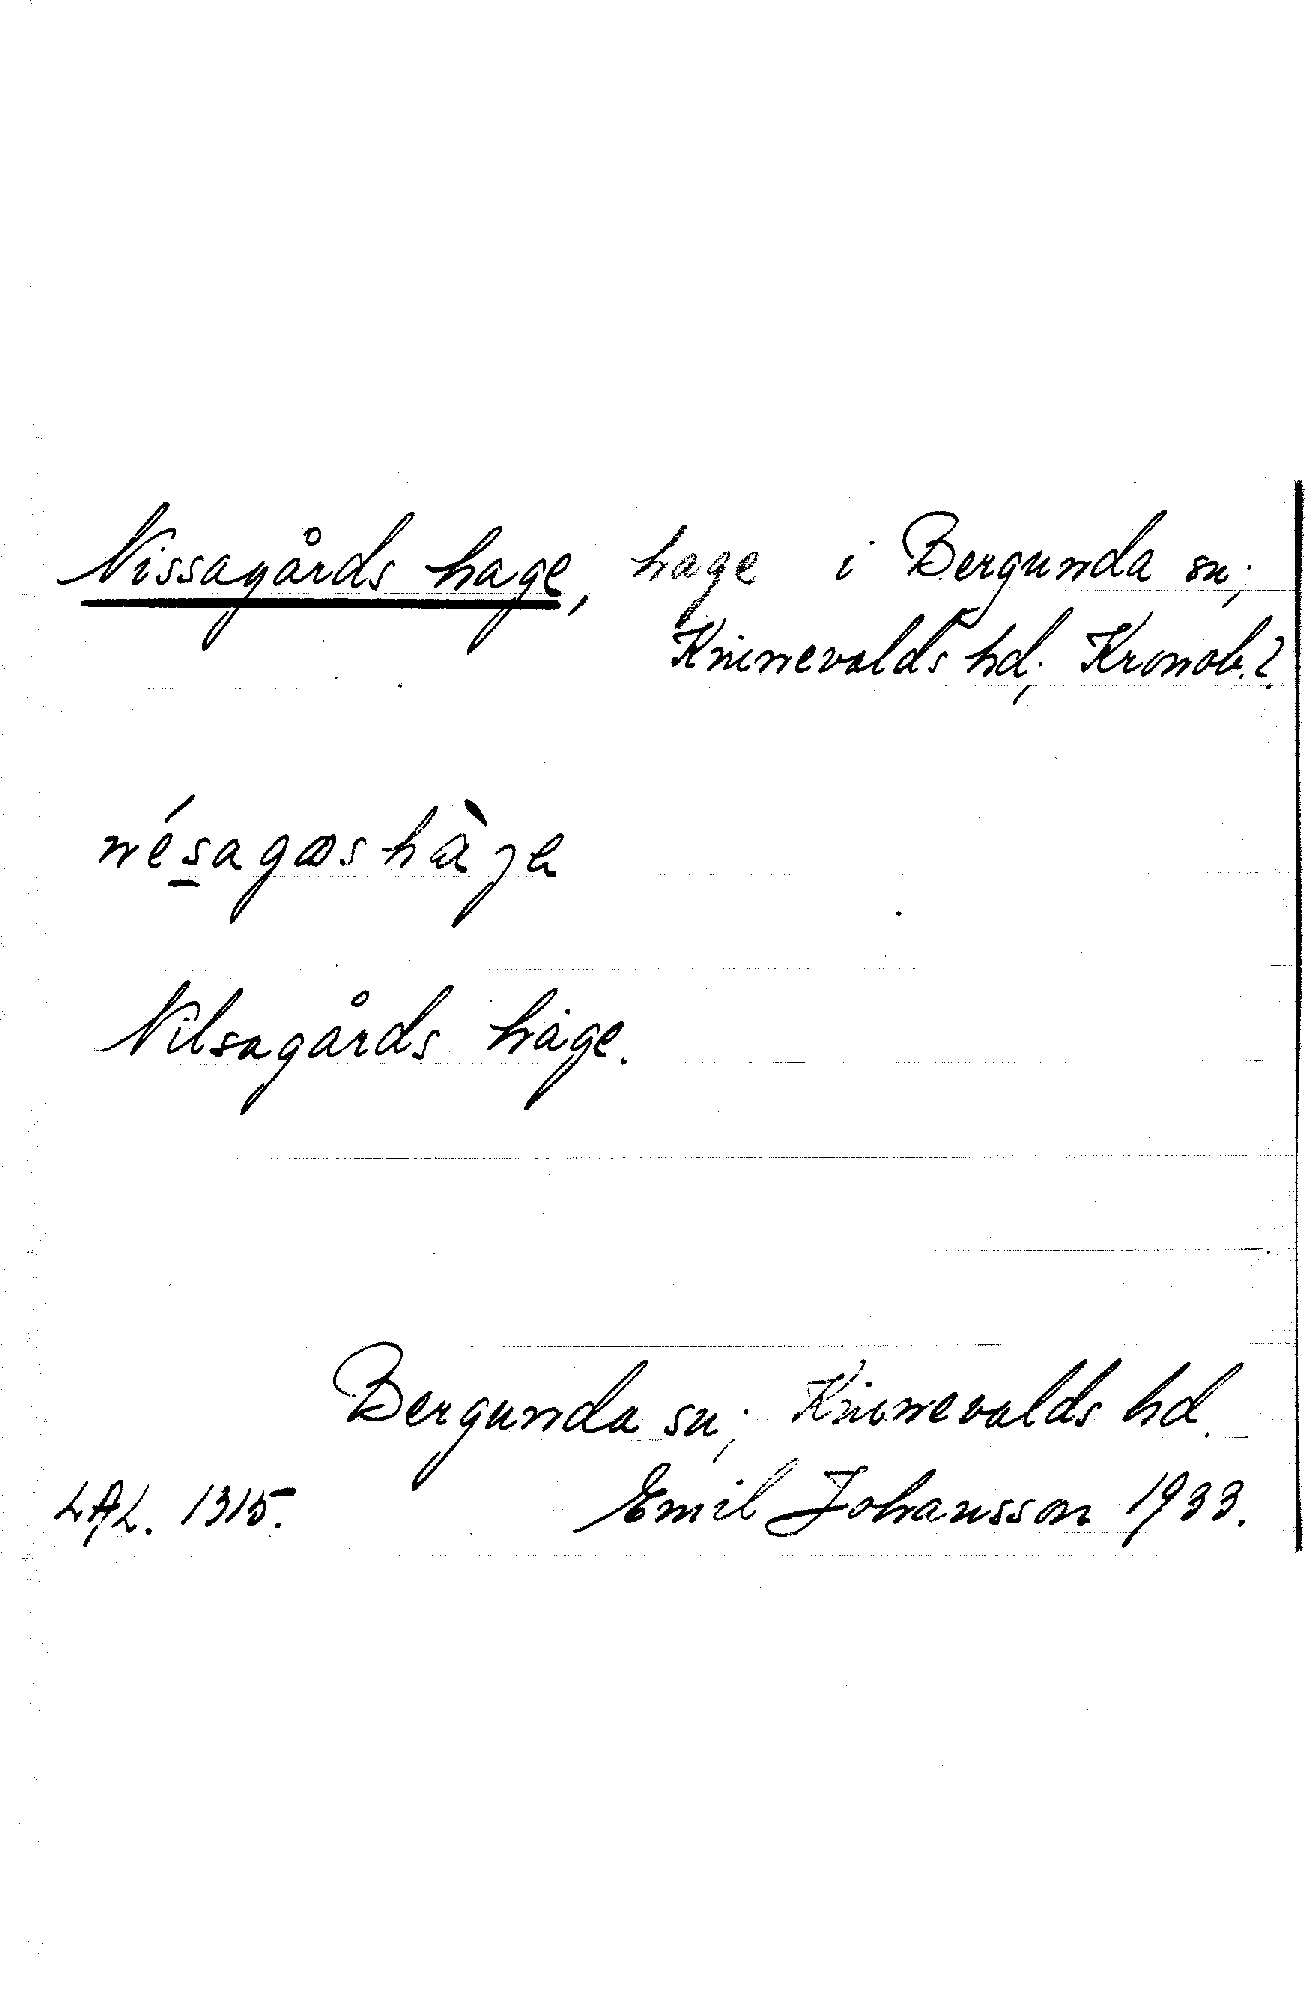 Nissagårds hage, hage i Bergunda sn;
Kinnevalds hd; Kronob. l.
nésagɷshàjɐ
Nilsagårds hage.
Bergunda sn; Kinnevalds hd.
LAL. 1315. Emil Johansson 1933.